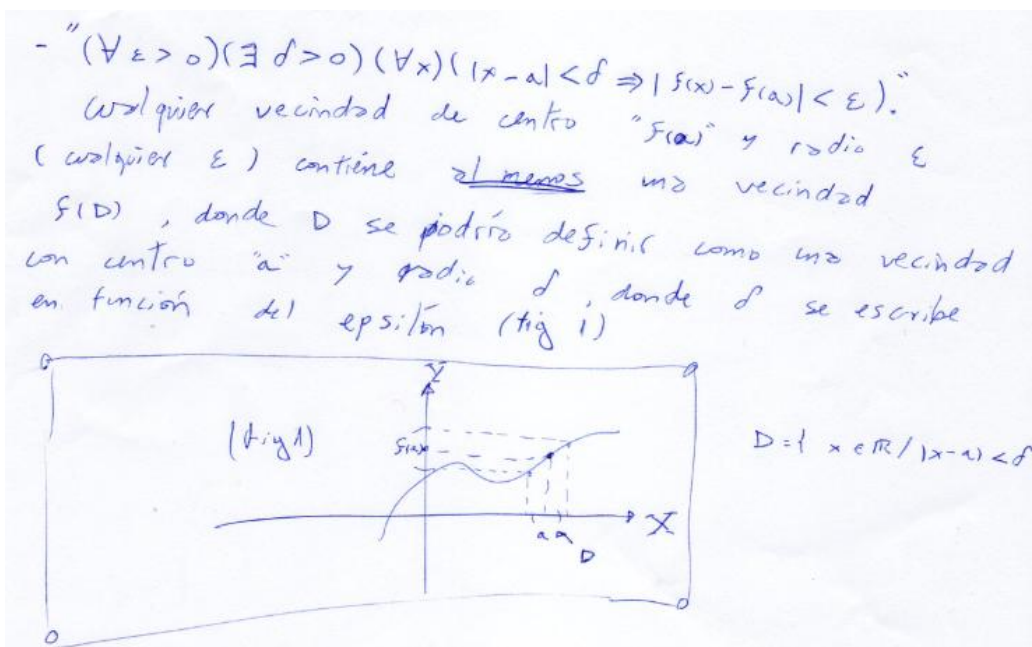 - "(∀ ε > 0)(∃ δ > 0)(∀x)(|x-a| < δ ⇒ |f(x) - f(a)| < ε)."
cualquier vecindad de centro "f(a)" y radio ε
(cualquier ε) contiene al menos una vecindad
f(D), donde D se podría definir como una vecindad
con centro "a" y radio δ, donde δ se escribe
en función del epsilón (fig 1)
Y
(fig 1)
f(a)
D = { x ∈ ℝ / |x-a| < δ
X
a
D